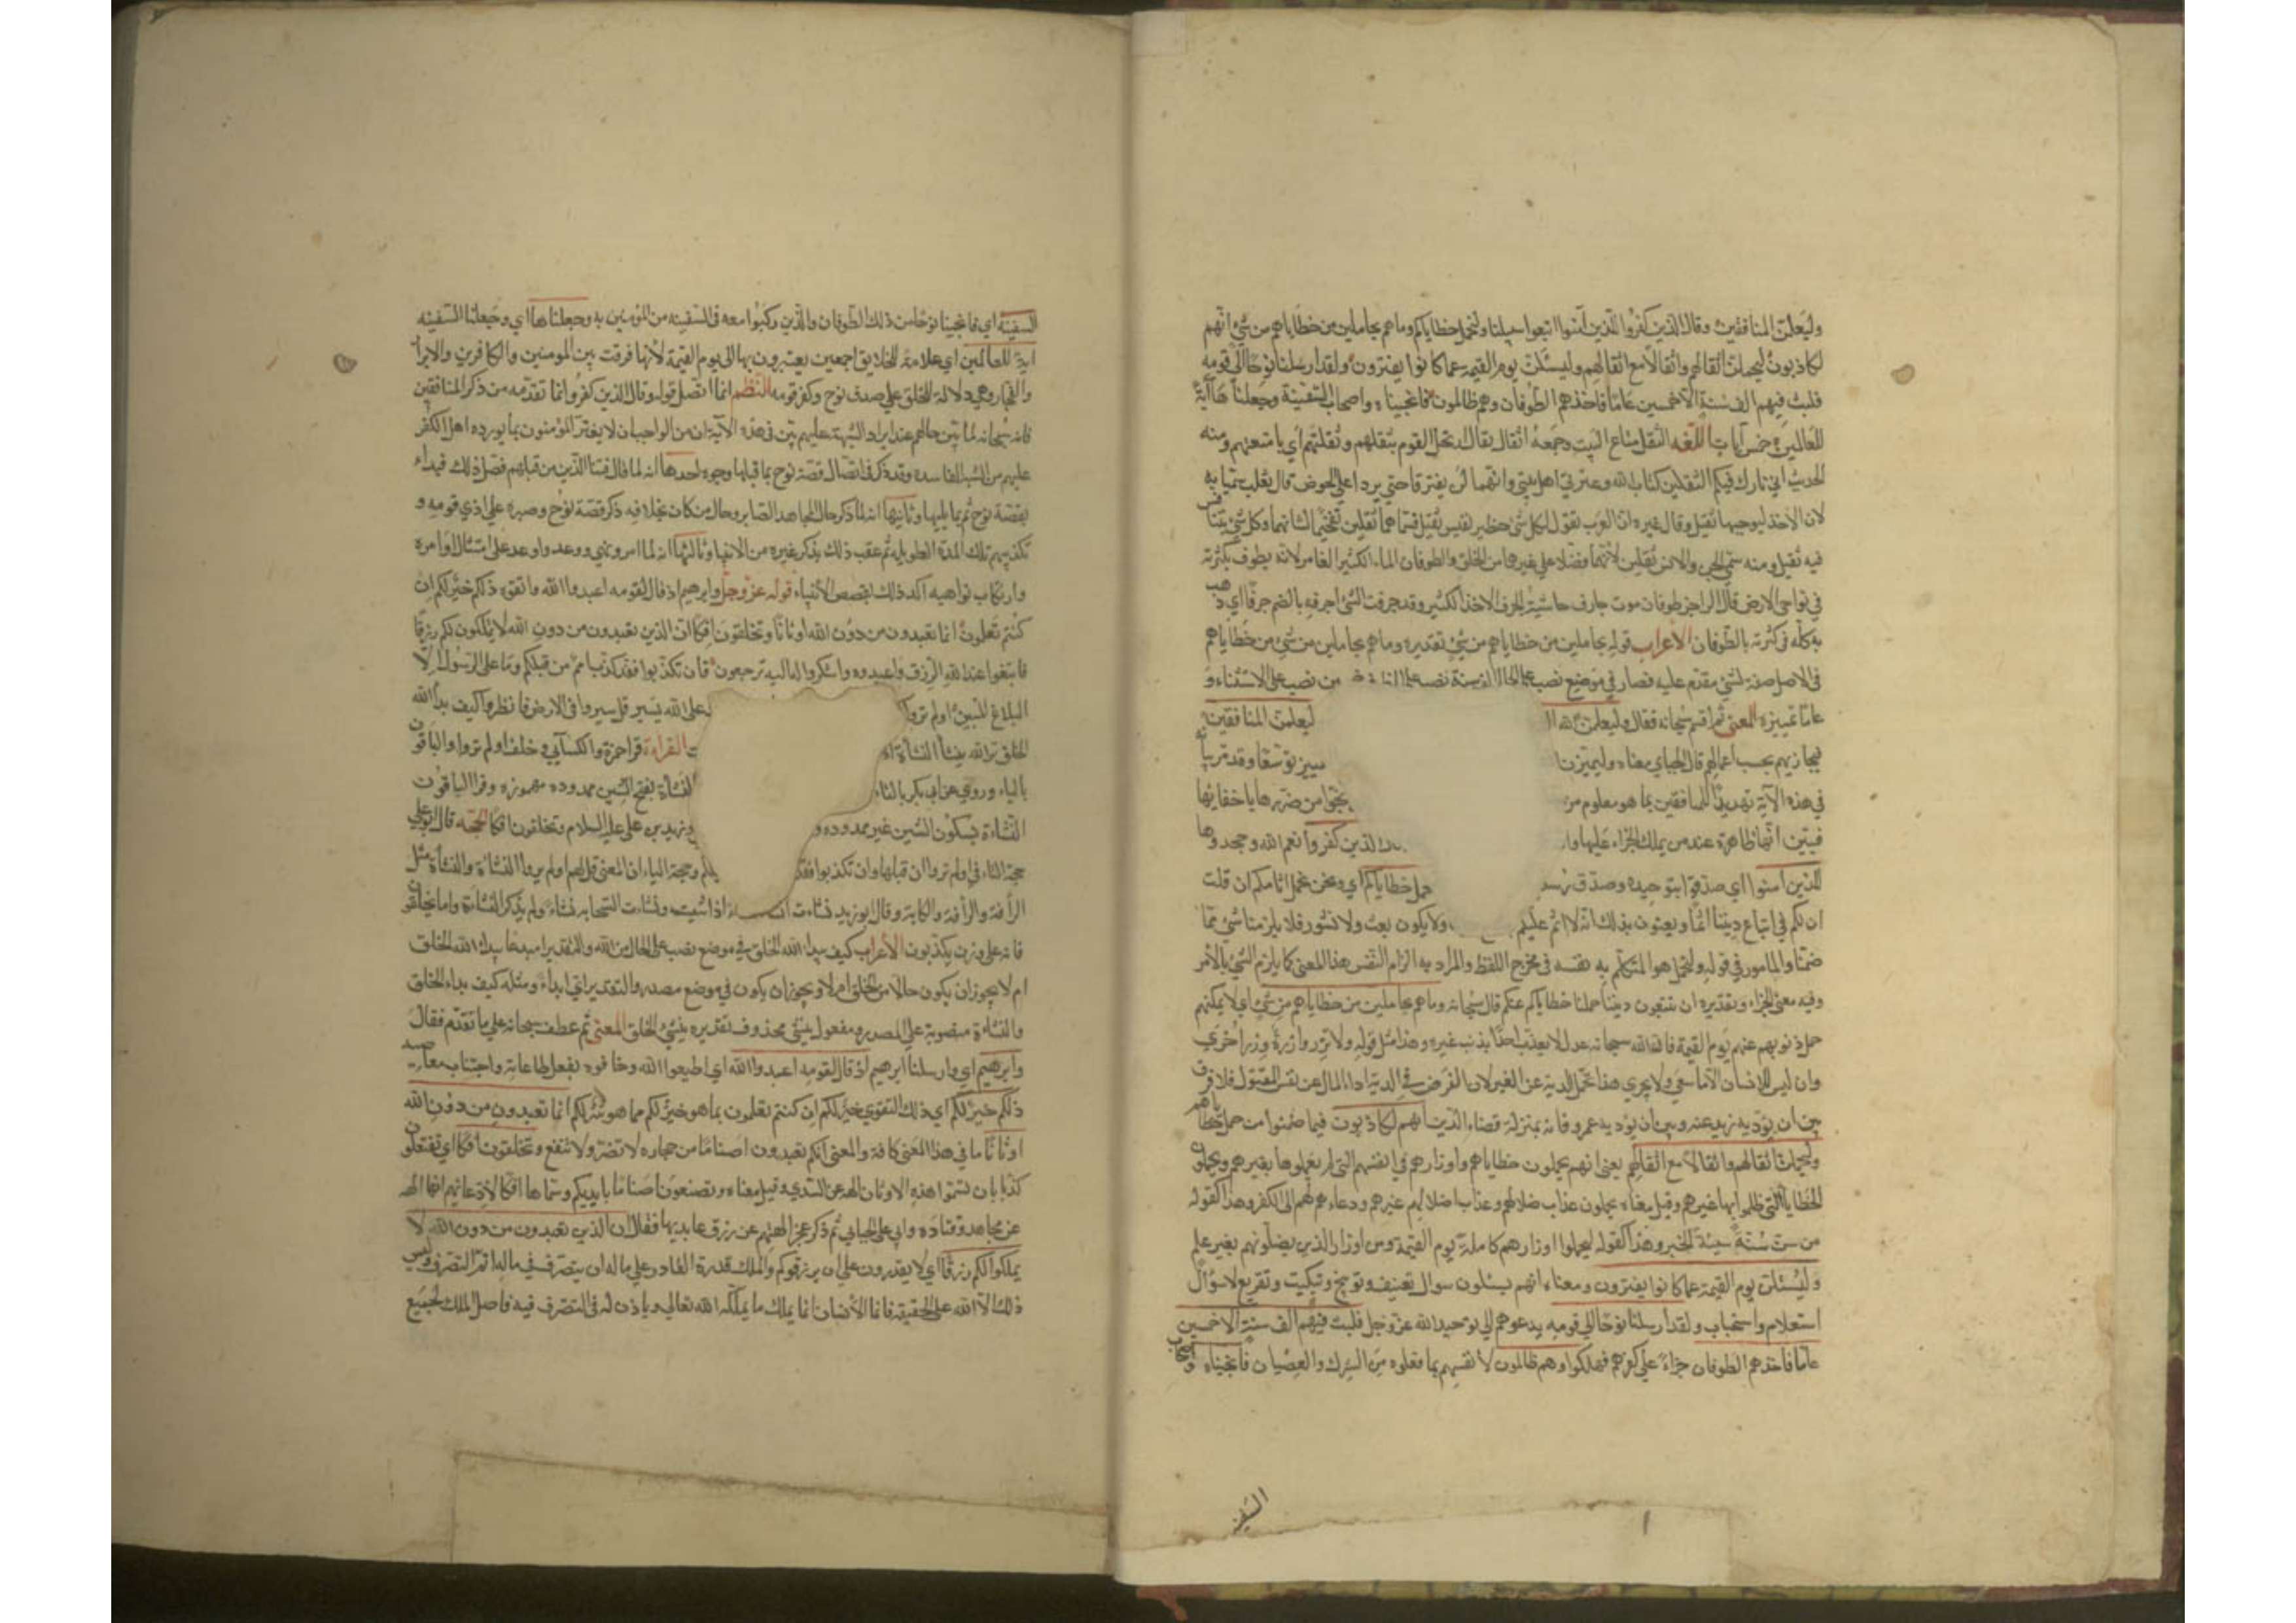 وليعلمن المنافقين وقال الذين كفروا للذين آمنوا اتبعوا سبيلنا ولنحمل خطاياكم وما هم بحاملين من خطاياهم من شئ انهم
لكاذبون ليحملن اثقالهم واثقالا مع اثقالهم وليسئلن يوم القيمة عما كانوا يفترون ولقد ارسلنا نوحا الى قومه
فلبث فيهم الف سنة الا خمسين عاما فاخذهم الطوفان وهم ظالمون فانجيناه واصحاب السفينة وجعلناها آية
للعالمين خمس آيات اللغه الثقل متاع البيت وجمعه اثقال يقال ارتحل القوم بثقلهم وثقلتهم اي بامتعتهم ومنه
الحديث اني تارك فيكم الثقلين كتاب الله وعترتي اهل بيتي وانهما لن يفترقا حتى يردا علي الحوض قال ثعلب سميا به
لان الاخذ بموجبهما ثقيل وقال غيره ان العرب تقول لكل شئ خطير نفيس ثقيل فسماهما ثقلين تفخيما لشانهما وكل شئ يتنافس
فيه ثقيل ومنه سمي الجن والانس ثقلين لانهما فضلا على غيرهما من الخلق والطوفان الماء الكثير الغامر لانه يطوف بكثرته
في نواحي الارض قال الراجز طوفان موت جارف حاشية الجرف الاخذ الكثير وقد جرفت الشئ اجرفه بالضم جرفا اي ذهب
به كله في كثرته بالطوفان الأعراب قوله بحاملين من خطاياهم من شئ تقديره وما هم بحاملين من شئ من خطاياهم
في الاصل صفة لشئ مقدم عليه فصار في موضع نصب على الحال الف سنة نصب على من نصب على الاستثناء و
عاما تمييزه المعنى ثم اقسم سبحانه فقال وليعلمن الله ليعلمن المنافقين
فيجازيهم بحسب اعمالهم قال الجبائي معناه وليميزن توسعا وقد مر بيانه
في هذه الآية تهديد للمنافقين بما هو معلوم من من ضررها باخفائها
فبين انها ظاهرة عند من يملك الجزاء عليها الذين كفروا نعم الله وجحدوها
للذين آمنوا اي صدقوا بتوحيده وصدق خطاياكم اي ونحن نحمل اثامكم ان قلت
ان لكم في اتباع ديننا اثما ويعنون بذلك انه لا اثم عليكم ولا يكون بعث ولا نشور فلا يلزمنا شئ مما
ضمنا والمأمور في قوله ولنحمل هو المتكلم به نفسه في مخرج اللفظ والمراد به الزام النفس هذا المعنى كما يلزم الشئ بالأمر
وفيه معنى الجزاء وتقديره ان تتبعون ديننا حملنا خطاياكم عنكم قال سبحانه وما هم بحاملين من خطاياهم من شئ اي لا يمكنهم
حمل ذنوبهم عنهم يوم القيمة فان الله سبحانه عدل لا يعذب احدا بذنب غيره وهذا مثل قوله ولا تزر وازرة وزر أخرى
وان ليس للانسان الا ما سعى ولا يجري هذا تحمل الدية عن الغير لان الغرض في الدية اداء المال عن نفس المقتول فلا فرق
بين ان يؤديه زيد عنه وبين ان يؤديه عمرو فانه بمنزلة قضاء الدين انهم لكاذبون فيما ضمنوا من حمل خطاياهم
وليحملن اثقالهم واثقالا مع اثقالهم يعني انهم يحملون خطاياهم واوزارهم في انفسهم التي لم يعملوها بغيرهم ويحملون
الخطايا التي ظلموا بها غيرهم وقيل معناه يحملون عذاب ضلالهم وعذاب اضلالهم غيرهم ودعاءهم لهم الى الكفر وهذا كقوله
من سن سنة سيئة الخبر وهذا كقوله ليحملوا اوزارهم كاملة يوم القيمة ومن اوزار الذين يضلونهم بغير علم
وليسئلن يوم القيمة عما كانوا يفترون ومعناه انهم يسئلون سوال تعنيف وتوبيخ وتبكيت وتقريع لا سؤال
استعلام واستخبار ولقد ارسلنا نوحا الى قومه يدعوهم الى توحيد الله عز وجل فلبث فيهم الف سنة الا خمسين
عاما فاخذهم الطوفان جزاء على كفرهم فهلكوا وهم ظالمون لأنفسهم بما فعلوه من الشرك والعصيان فانجيناه واصحاب
السفينة
السفينة اي فانجينا نوحا من ذلك الطوفان والذين ركبوا معه في السفينة من المؤمنين به وجعلناها اي وجعلنا السفينه
آية للعالمين اي علامة للخلايق اجمعين يعتبرون بها الى يوم القيمة لأنها فرقت بين المومنين والكافرين والابرار
والفجار وهي دلالة للخلق على صدق نوح وكفر قومه النظم انما اتصل قوله وقال الذين كفروا بما تقدمه من ذكر المنافقين
فانه سبحانه لما بين حالهم عند ايراد الشبهة عليهم بين في هذه الآية ان من الواجب ان لا يغتر المؤمنون بما يورده اهل الكفر
عليهم من الشبه الفاسده وقد ذكر في اتصال قصة نوح بما قبلها وجوه احدها انه لما قال فتنا الذين من قبلهم فصل ذلك فبداء
بقصة نوح ثم بما يليها وثانيها انه لما ذكر حال المجاهد الصابر وحال من كان بخلافه ذكر قصة نوح وصبره على اذى قومه و
تكذيبهم تلك المدة الطويله ثم عقب ذلك بذكر غيره من الانبياء وثالثها انه لما امر ونهى ووعد واوعد على امتثال اوامره
وارتكاب نواهيه اكد ذلك بقصص الأنبياء قوله عز وجل وابرهيم اذ قال لقومه اعبدوا الله واتقوه ذلكم خير لكم ان
كنتم تعلمون انما تعبدون من دون الله اوثانا وتخلقون افكا ان الذين تعبدون من دون الله لا يملكون لكم رزقا
فابتغوا عند الله الرزق واعبدوه واشكروا له اليه ترجعون فان تكذبوا فقد كذب امم من قبلكم وما على الرسول الا
البلاغ المبين اولم تروا على الله يسير قل سيروا في الارض فانظروا كيف بدأ الله
الخلق ثم الله ينشأ النشأة القراءة قرأ حمزة والكسائي وخلف اولم تروا والباقون
بالياء وروي عن ابي بكر بالتاء النشاءة بفتح الشين ممدوده مهموزه وقرأ الباقون
النشاءة بسكون الشين غير ممدوده و وزيد بن علي عليه السلام وتخلقون افكا الحجه قال ابو علي
حجة التاء في اولم تروا ان قبلها وان تكذبوا فقد وحجة الياء ان المعنى قل لهم اولم يروا النشاءة والنشأة مثل
الرأفة والرآفة والكابة وقال ابو زيد نشات اذا شبت ونشات السحابه نشاء ولم يذكر النشاءة واما تخلقون
فانه على وزن يكذبون الأعراب كيف يبدا الله الخلق في موضع نصب على الحال من الله والتقدير امبدعا يبدا الله الخلق
ام لا يجوز ان يكون حالا من الخلق ام لا ويجوز ان يكون في موضع مصدر والتقدير اي ابداء ومثله كيف بداء الخلق
والنشاءة منصوبة على المصدر ومفعول ينشئ محذوف تقديره ينشئ الخلق المعنى ثم عطف سبحانه على ما تقدم فقال
وابرهيم اي وارسلنا ابرهيم اذ قال لقومه اعبدوا الله اي اطيعوا الله وخافوه بفعل طاعاته واجتناب معاصيه
ذلكم خير لكم اي ذلك التقوى خير لكم ان كنتم تعلمون بما هو خير لكم مما هو شر لكم انما تعبدون من دون الله
اوثانا ما في هذا المعنى كافة والمعنى انكم تعبدون اصناما من حجاره لا تضر ولا تنفع وتخلقون افكا اي تفتعلون
كذبا بان تسموا هذه الاوثان الهه عن السدي وقيل معناه وتصنعون اصناما بايديكم وسماها افكا لادعائهم انها الهه
عن مجاهد وقتاده وابي علي الجبائي ثم ذكر عجز الهتهم عن رزق عابديها فقال ان الذين تعبدون من دون الله لا
يملكوا لكم رزقا اي لا يقدرون على ان يرزقوكم والملك قدرة القادر على ما له ان يتصرف في ماله اتم التصرف وليس
ذلك الا الله على الحقيقه فانما الأنسان انما يملك ما يملكه الله تعالى وياذن له في التصرف فيه فاصل الملك لجميع